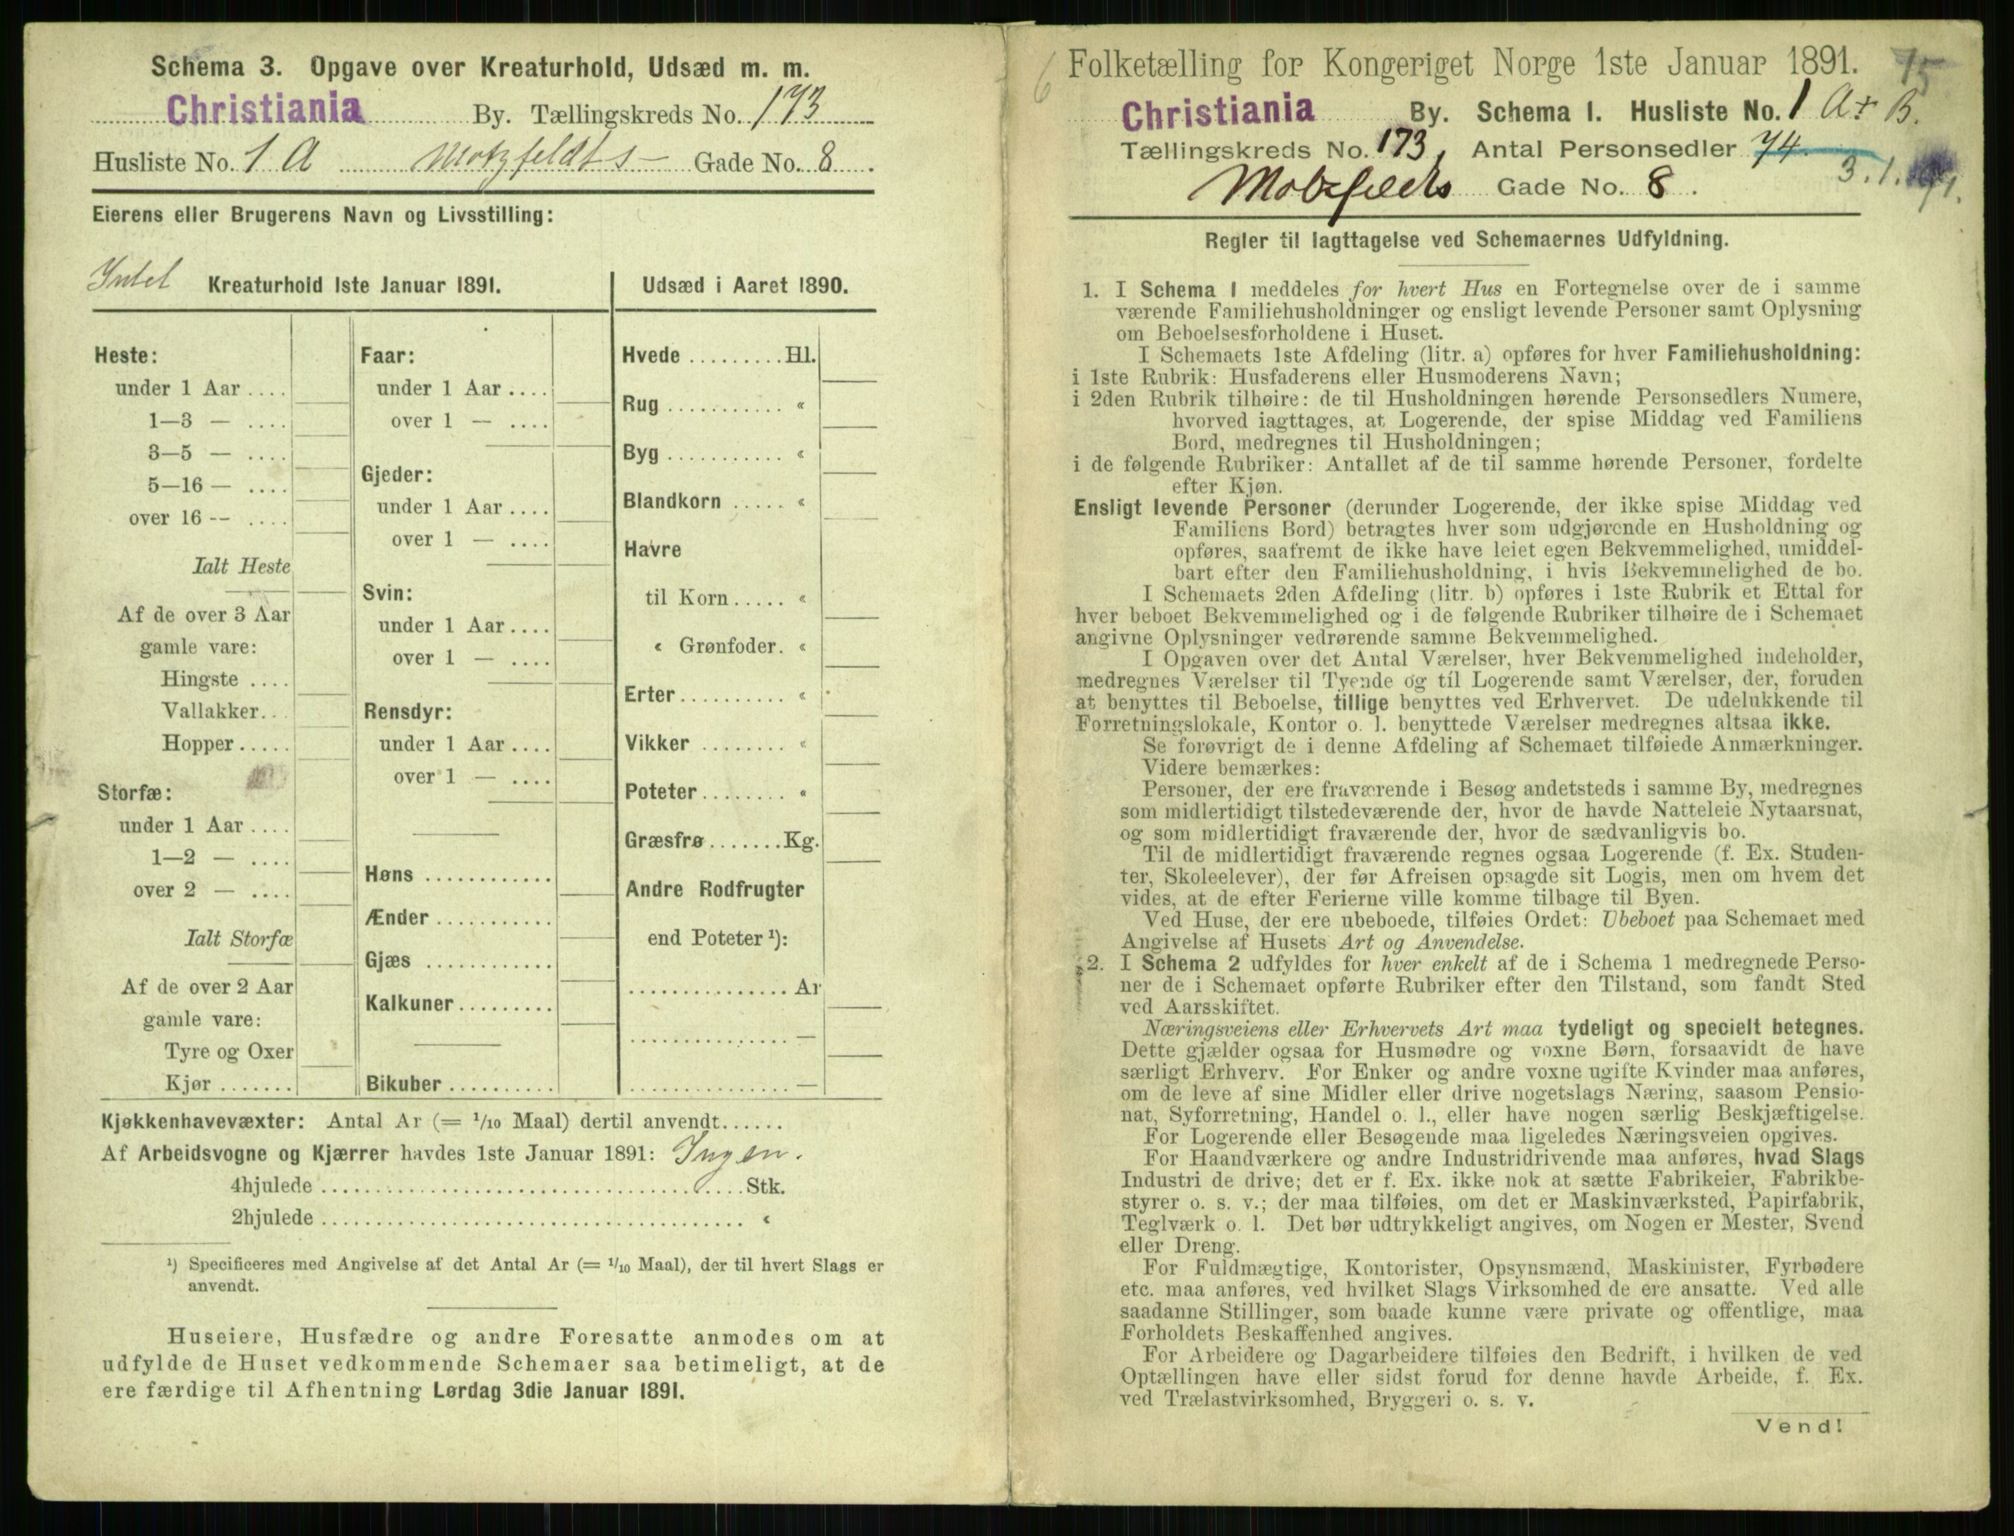 Schema 3. Opgave over Kreaturhold, Udsæd m. m.
Christiania By. Tællingskreds No. 173
Husliste No. 1 A Motzfeldts Gade No. 8.
Eierens eller Brugerens Navn og Livsstilling:
Intet Kreaturhold 1ste Januar 1891.
Heste:
under 1 Aar ....
1—3 — ....
3—5 — ....
5—16 — ....
over 16 -- ....
Ialt Heste
Af de over 3 Aar
gamle vare:
Hingste ....
Vallakker...
Hopper.....
Storfæ:
under 1 Aar ....
1—2 — ....
over 2 — ....
Ialt Storfæ
Af de over 2 Aar
gamle vare:
Tyre og Oxer
Kjør .......
Faar:
under 1 Aar ....
over 1 — ....
Gjeder:
under 1 Aar ....
over 1 — ....
Svin:
under 1 Aar ....
over 1 — ....
Rensdyr:
under 1 Aar ....
over 1 — ....
Høns ............
Ænder ...........
Gjæs ............
Kalkuner.........
Bikuber ..........
Udsæd i Aaret 1890.
Hvede .........Hl.
Rug ........... «
Byg ........... «
Blandkorn ..... «
Havre
til Korn..... «
« Grønfoder. «
Erter.......... «
Vikker ........ «
Poteter........ «
Græsfrø .......Kg.
Andre Rodfrugter
end Poteter ¹):
............... Ar
............... —
............... —
Kjøkkenhavevæxter: Antal Ar (= ¹/₁₀ Maal) dertil anvendt......
Af Arbeidsvogne og Kjærrer havdes 1ste Januar 1891: Ingen.
4hjulede ........................................ Stk.
2hjulede ........................................ «
¹) Specificeres med Angivelse af det Antal Ar (= ¹/₁₀ Maal), der til hvert Slags er
anvendt.
Huseiere, Husfædre og andre Foresatte anmodes om at
udfylde de Huset vedkommende Schemaer saa betimeligt, at de
ere færdige til Afhentning Lørdag 3die Januar 1891.
6 Folketælling for Kongeriget Norge 1ste Januar 1891. 75
Christiania By. Schema I. Husliste No. 1 A + B.
Tællingskreds No. 173, Antal Personsedler 74
3.1.91.
Motzfeldts Gade No. 8.
Regler til Iagttagelse ved Schemaernes Udfyldning.
1. I Schema 1 meddeles for hvert Hus en Fortegnelse over de i samme
værende Familiehusholdninger og ensligt levende Personer samt Oplysning
om Beboelsesforholdene i Huset.
I Schemaets 1ste Afdeling (litr. a) opføres for hver Familiehusholdning:
i 1ste Rubrik: Husfaderens eller Husmoderens Navn;
i 2den Rubrik tilhøire: de til Husholdningen hørende Personsedlers Numere,
hvorved iagttages, at Logerende, der spise Middag ved Familiens
Bord, medregnes til Husholdningen;
i de følgende Rubriker: Antallet af de til samme hørende Personer, fordelte
efter Kjøn.
Ensligt levende Personer (derunder Logerende, der ikke spise Middag ved
Familiens Bord) betragtes hver som udgjørende en Husholdning og
opføres, saafremt de ikke have leiet egen Bekvemmelighed, umiddel-
bart efter den Familiehusholdning, i hvis Bekvemmelighed de bo.
I Schemaets 2den Afdeling (litr. b) opføres i 1ste Rubrik et Ettal for
hver beboet Bekvemmelighed og i de følgende Rubriker tilhøire de i Schemaet
angivne Oplysninger vedrørende samme Bekvemmelighed.
I Opgaven over det Antal Værelser, hver Bekvemmelighed indeholder,
medregnes Værelser til Tyende og til Logerende samt Værelser, der, foruden
at benyttes til Beboelse, tillige benyttes ved Erhvervet. De udelukkende til
Forretningslokale, Kontor o. l. benyttede Værelser medregnes altsaa ikke.
Se forøvrigt de i denne Afdeling af Schemaet tilføiede Anmærkninger.
Videre bemærkes:
Personer, der ere fraværende i Besøg andetsteds i samme By, medregnes
som midlertidigt tilstedeværende der, hvor de havde Natteleie Nytaarsnat,
og som midlertidigt fraværende der, hvor de sædvanligvis bo.
Til de midlertidigt fraværende regnes ogsaa Logerende (f. Ex. Studen-
ter, Skoleelever), der før Afreisen opsagde sit Logis, men om hvem det
vides, at de efter Ferierne ville komme tilbage til Byen.
Ved Huse, der ere ubeboede, tilføies Ordet: Ubeboet paa Schemaet med
Angivelse af Husets Art og Anvendelse.
2. I Schema 2 udfyldes for hver enkelt af de i Schema 1 medregnede Perso-
ner de i Schemaet opførte Rubriker efter den Tilstand, som fandt Sted
ved Aarsskiftet.
Næringsveiens eller Erhvervets Art maa tydeligt og specielt betegnes.
Dette gjælder ogsaa for Husmødre og voxne Børn, forsaavidt de have
særligt Erhverv. For Enker og andre voxne ugifte Kvinder maa anføres,
om de leve af sine Midler eller drive nogetslags Næring, saasom Pensio-
nat, Syforretning, Handel o. l., eller have nogen særlig Beskjæftigelse.
For Logerende eller Besøgende maa ligeledes Næringsveien opgives.
For Haandværkere og andre Industridrivende maa anføres, hvad Slags
Industri de drive; det er f. Ex. ikke nok at sætte Fabrikeier, Fabrikbe-
styrer o. s. v.; der maa tilføies, om det er Maskinværksted, Papirfabrik,
Teglværk o. l. Det bør udtrykkeligt angives, om Nogen er Mester, Svend
eller Dreng.
For Fuldmægtige, Kontorister, Opsynsmænd, Maskinister, Fyrbødere
etc. maa anføres, ved hvilket Slags Virksomhed de ere ansatte. Ved alle
saadanne Stillinger, som baade kunne være private og offentlige, maa
Forholdets Beskaffenhed angives.
For Arbeidere og Dagarbeidere tilføies den Bedrift, i hvilken de ved
Optællingen have eller sidst forud for denne havde Arbeide, f. Ex.
ved Trælastvirksomhed, Bryggeri o. s. v.
Vend!